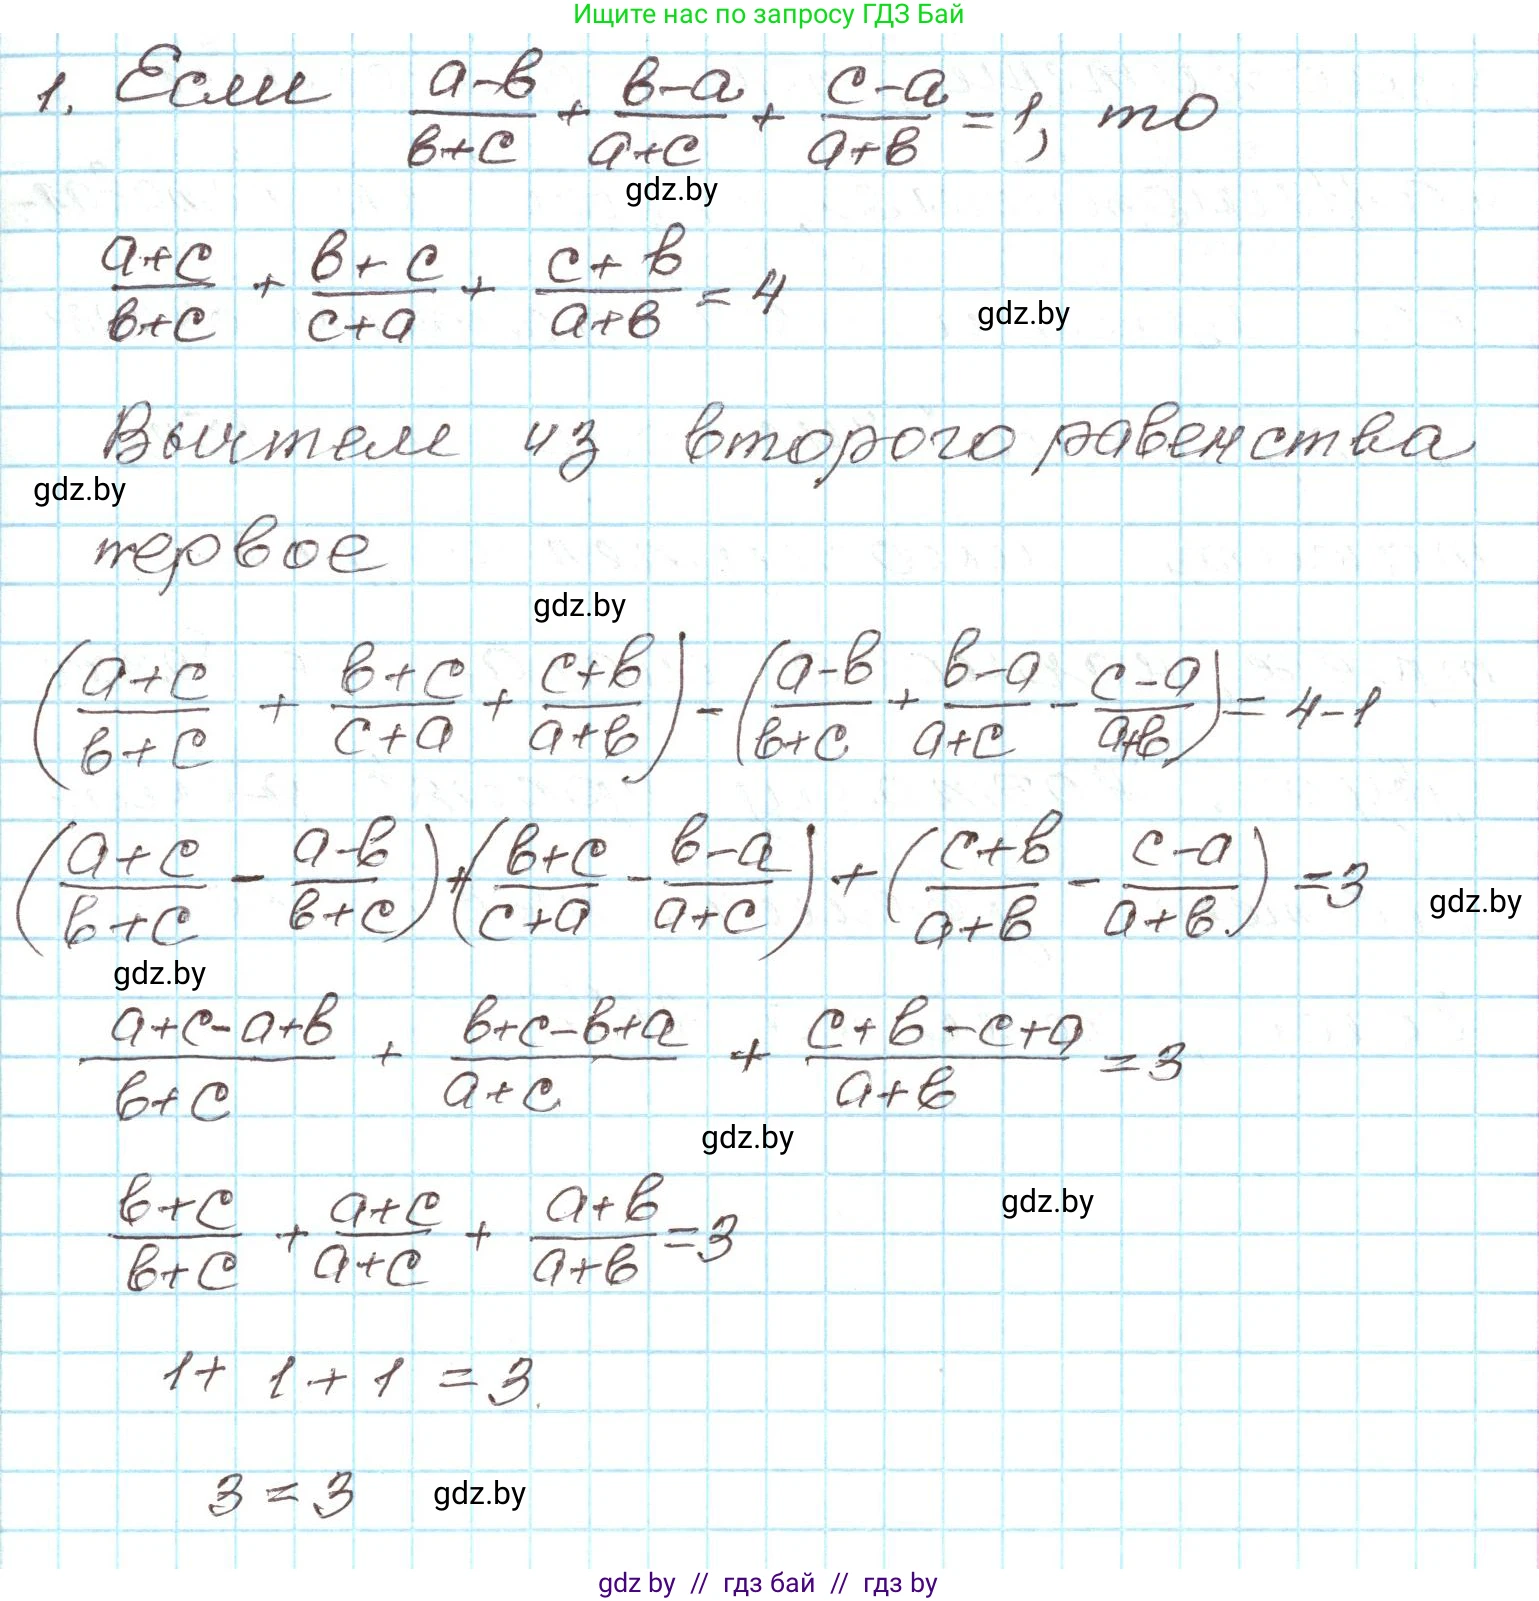 Ищите нас по запросу ГДЗ Бай
1. Если (a-b)/(b+c) + (b-a)/(a+c) + (c-a)/(a+b) = 1, то
gdz.by
(a+c)/(b+c) + (b+c)/(c+a) + (c+b)/(a+b) = 4
gdz.by
Вычтем из второго равенства
gdz.by
первое
gdz.by
((a+c)/(b+c) + (b+c)/(c+a) + (c+b)/(a+b)) - ((a-b)/(b+c) + (b-a)/(a+c) - (c-a)/(a+b)) = 4-1
((a+c)/(b+c) - (a-b)/(b+c)) + ((b+c)/(c+a) - (b-a)/(a+c)) + ((c+b)/(a+b) - (c-a)/(a+b)) = 3
gdz.by
gdz.by
(a+c-a+b)/(b+c) + (b+c-b+a)/(a+c) + (c+b-c+a)/(a+b) = 3
gdz.by
(b+c)/(b+c) + (a+c)/(a+c) + (a+b)/(a+b) = 3
gdz.by
1+ 1+1 = 3.
3 = 3
gdz.by
gdz by // гдз бай // гдз by